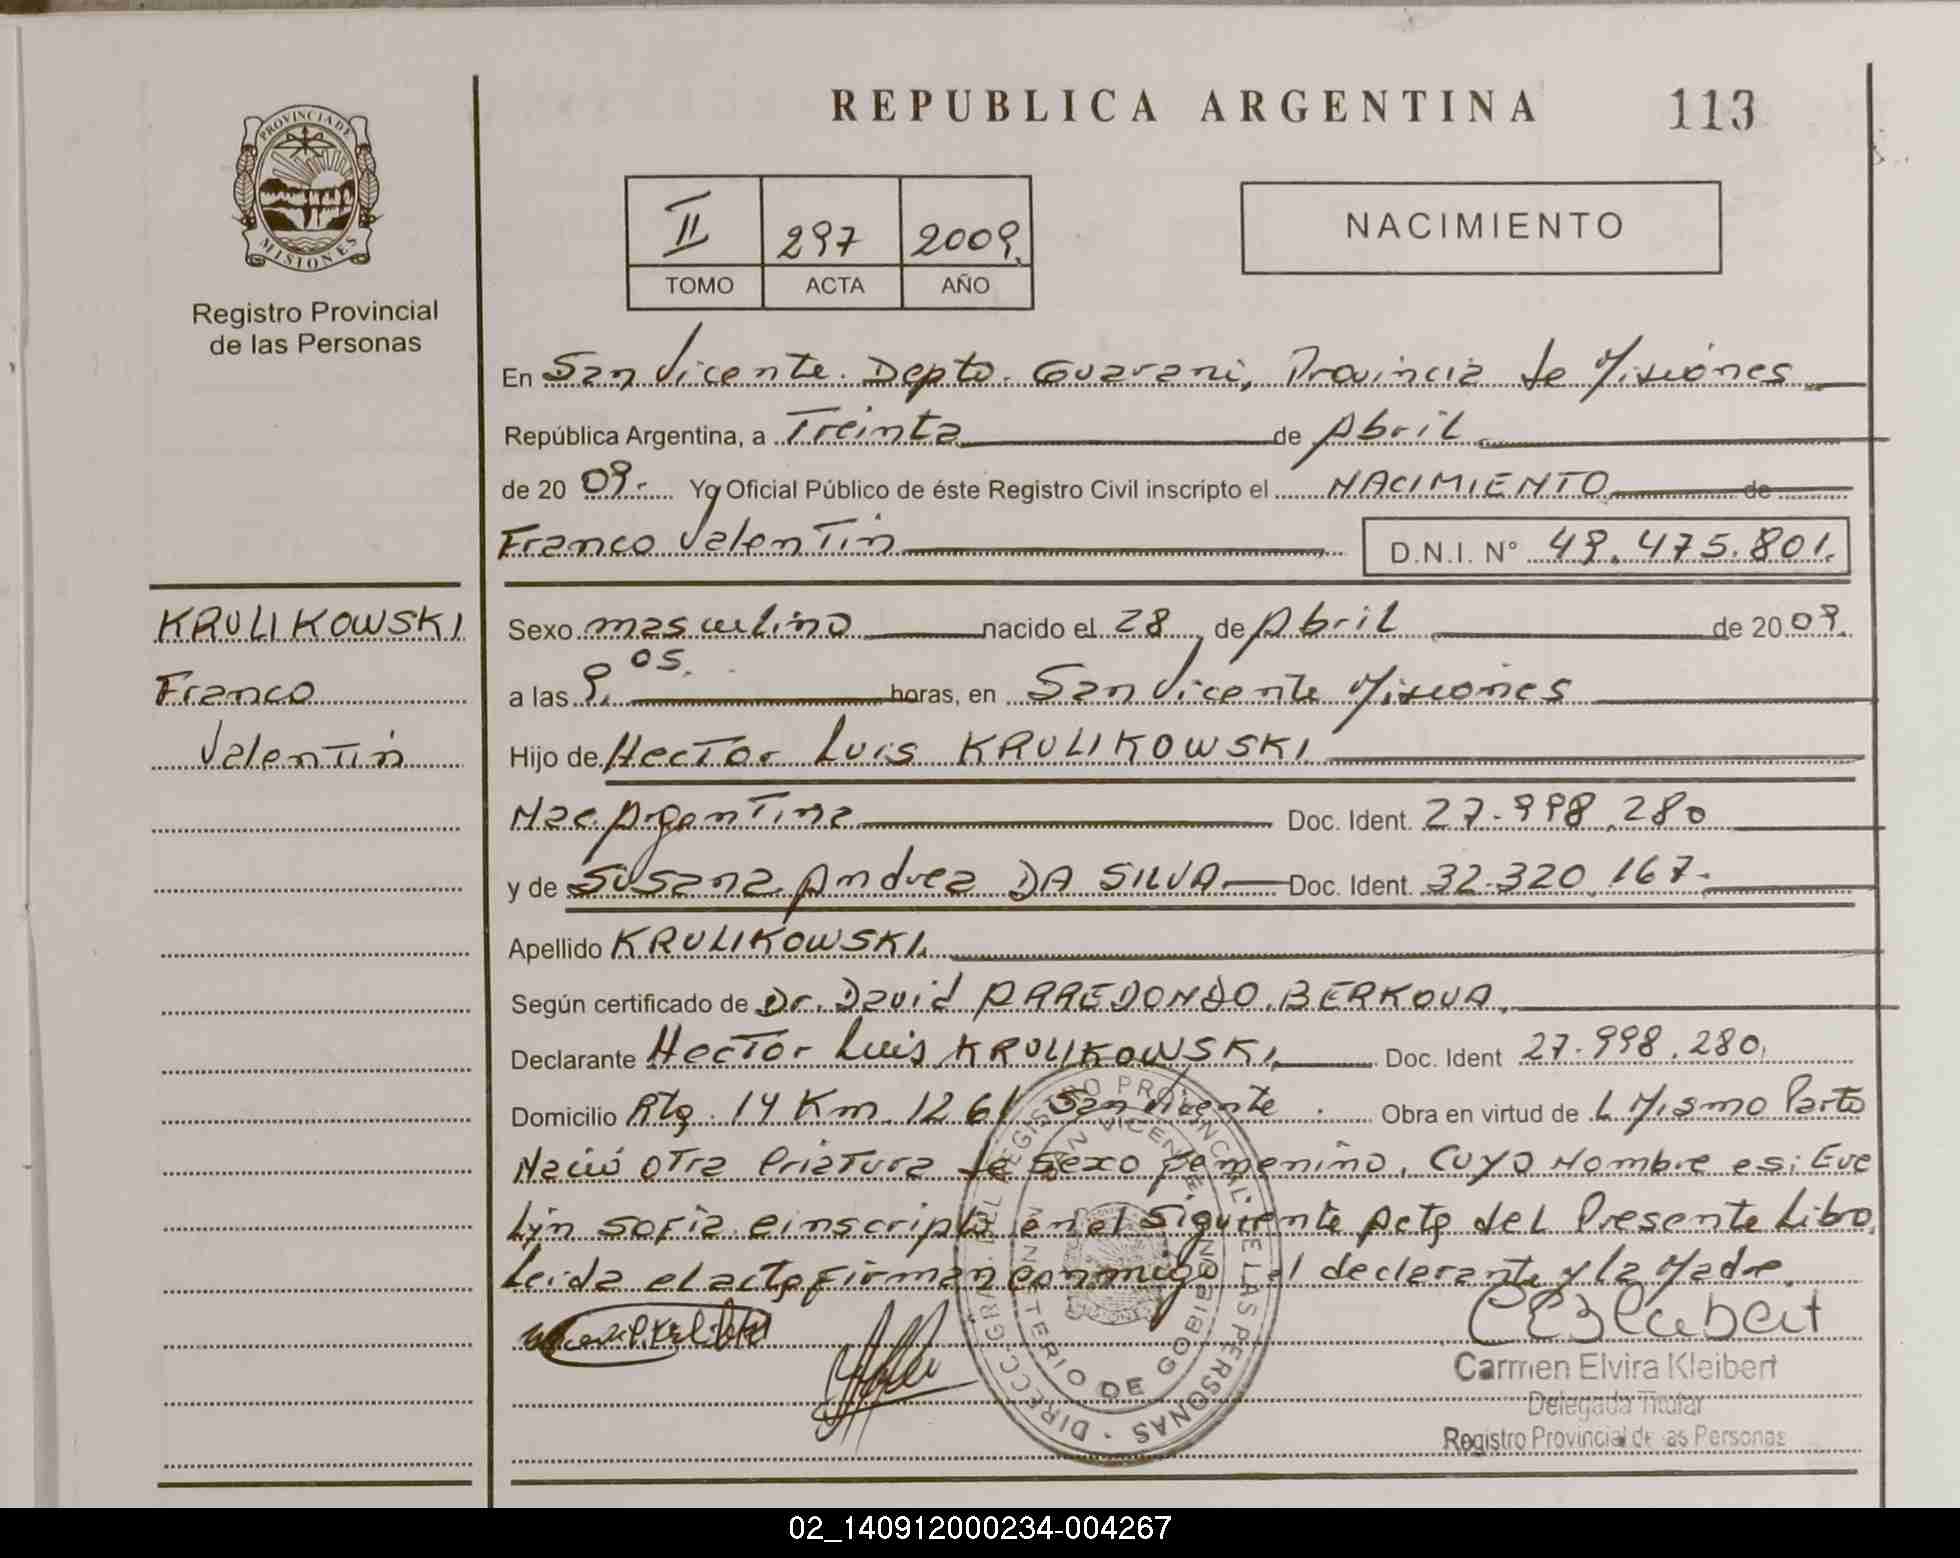 REPUBLICA ARGENTINA 113
PROVINCIA DE
MISIONES
Registro Provincial
de las Personas
II 297 2009.
TOMO ACTA AÑO
NACIMIENTO
En San Vicente. Depto. Guarani, Provincia de Misiones
República Argentina, a Treinta de Abril
de 20 09. Yo Oficial Público de éste Registro Civil inscripto el NACIMIENTO de
Franco Valentin D.N.I. N° 49.475.801.
KRULIKOWSKI
Franco
Valentin
Sexo masculino nacido el 28 de Abril de 20 09.
a las 9. 05. horas, en San Vicente Misiones
Hijo de Hector Luis KRULIKOWSKI
Nac. Argentina Doc. Ident. 27.998.280
y de Susana Andrea DA SILVA Doc. Ident. 32.320.167.
Apellido KRULIKOWSKI.
Según certificado de Dr. David ARREDONDO BERKOVA.
Declarante Hector Luis KRULIKOWSKI, Doc. Ident 27.998.280.
Domicilio Rta. 14 Km. 1261 San Vicente. Obra en virtud de L Mismo Parto
Nació otra Criatura de Sexo Femenino, Cuyo Nombre es: Eve
Lyn Sofia e inscripta en el Siguiente Acta del Presente Libro.
Leida el acta firman conmigo el declarante y la Madre.
Carmen Elvira Kleibert
Delegada Titular
Registro Provincial de las Personas
DIRECC GRAL DEL REGISTRO PROVINCIAL DE LAS PERSONAS
SAN VICENTE
MINISTERIO DE GOBIERNO
02_140912000234-004267